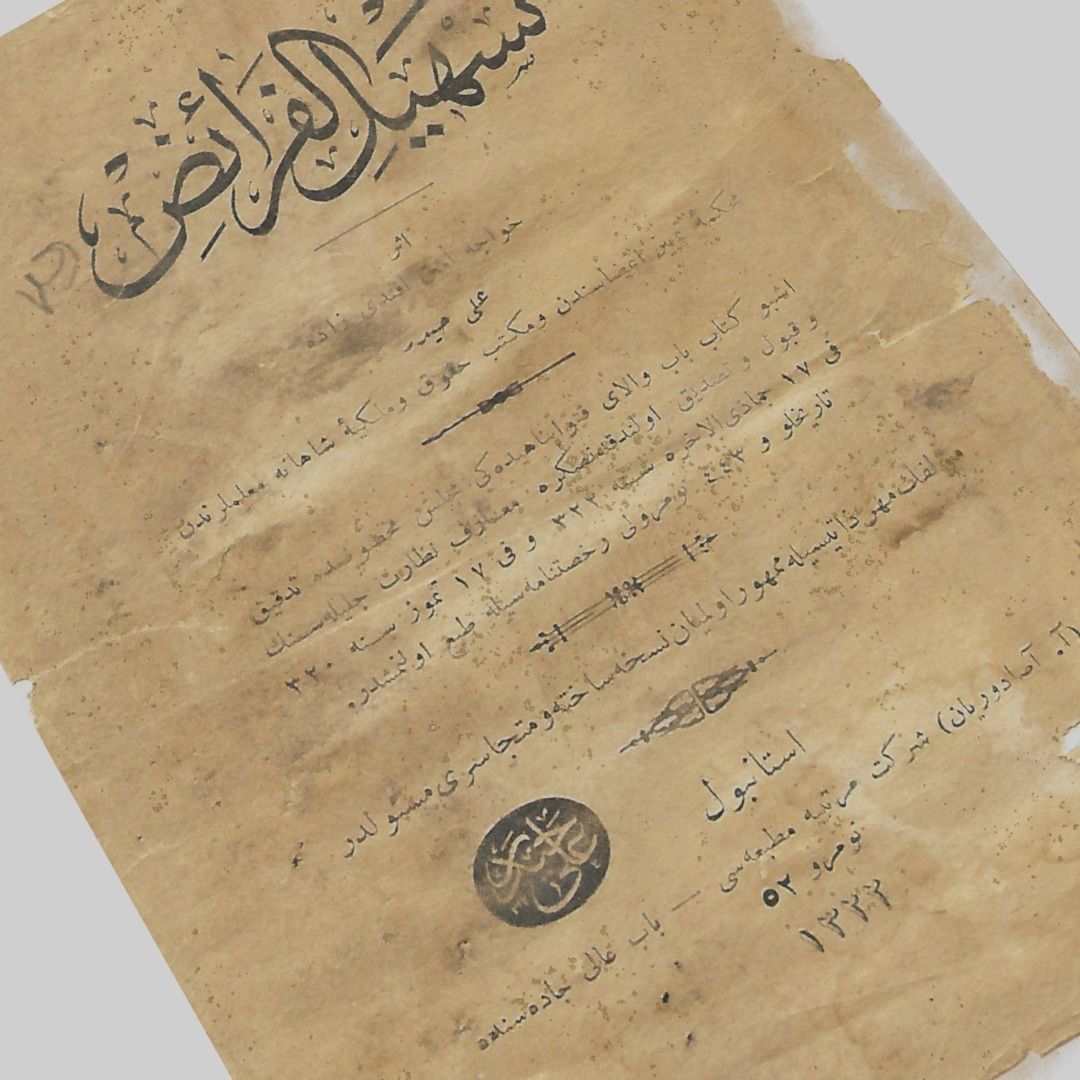 تسهيل الفرائض
اثر
خواجه امين افندى زاده
على حيدر
محكمۀ تميز اعضاسندن ومكتب حقوق وملكيۀ شاهانه معلملرندن
اشبو كتاب باب والاى فتواپناهيده‌كى مجلس مخصوصنده تدقيق
وقبول و تصديق اولندقدنصكره معارف نظارت جليله‌سنك
فى ١٧ جمادى‌الاخره سنه ٣٢٢ وفى ١٧ تموز سنه ٣٢٠
تاريخلو و ٤٤٣ نومرولى رخصتنامه‌سيله طبع اولنمشدر.
مؤلفك مهر ذاتيسيله ممهور اولميان نسخه ساخته ومتجاسرى مسئولدر
على حيدر
استانبول
(آ. آصادوريان) شركت مرتبيه مطبعه‌سى — باب عالى جاده‌سنده
نومرو ٥٢
١٣٢٢